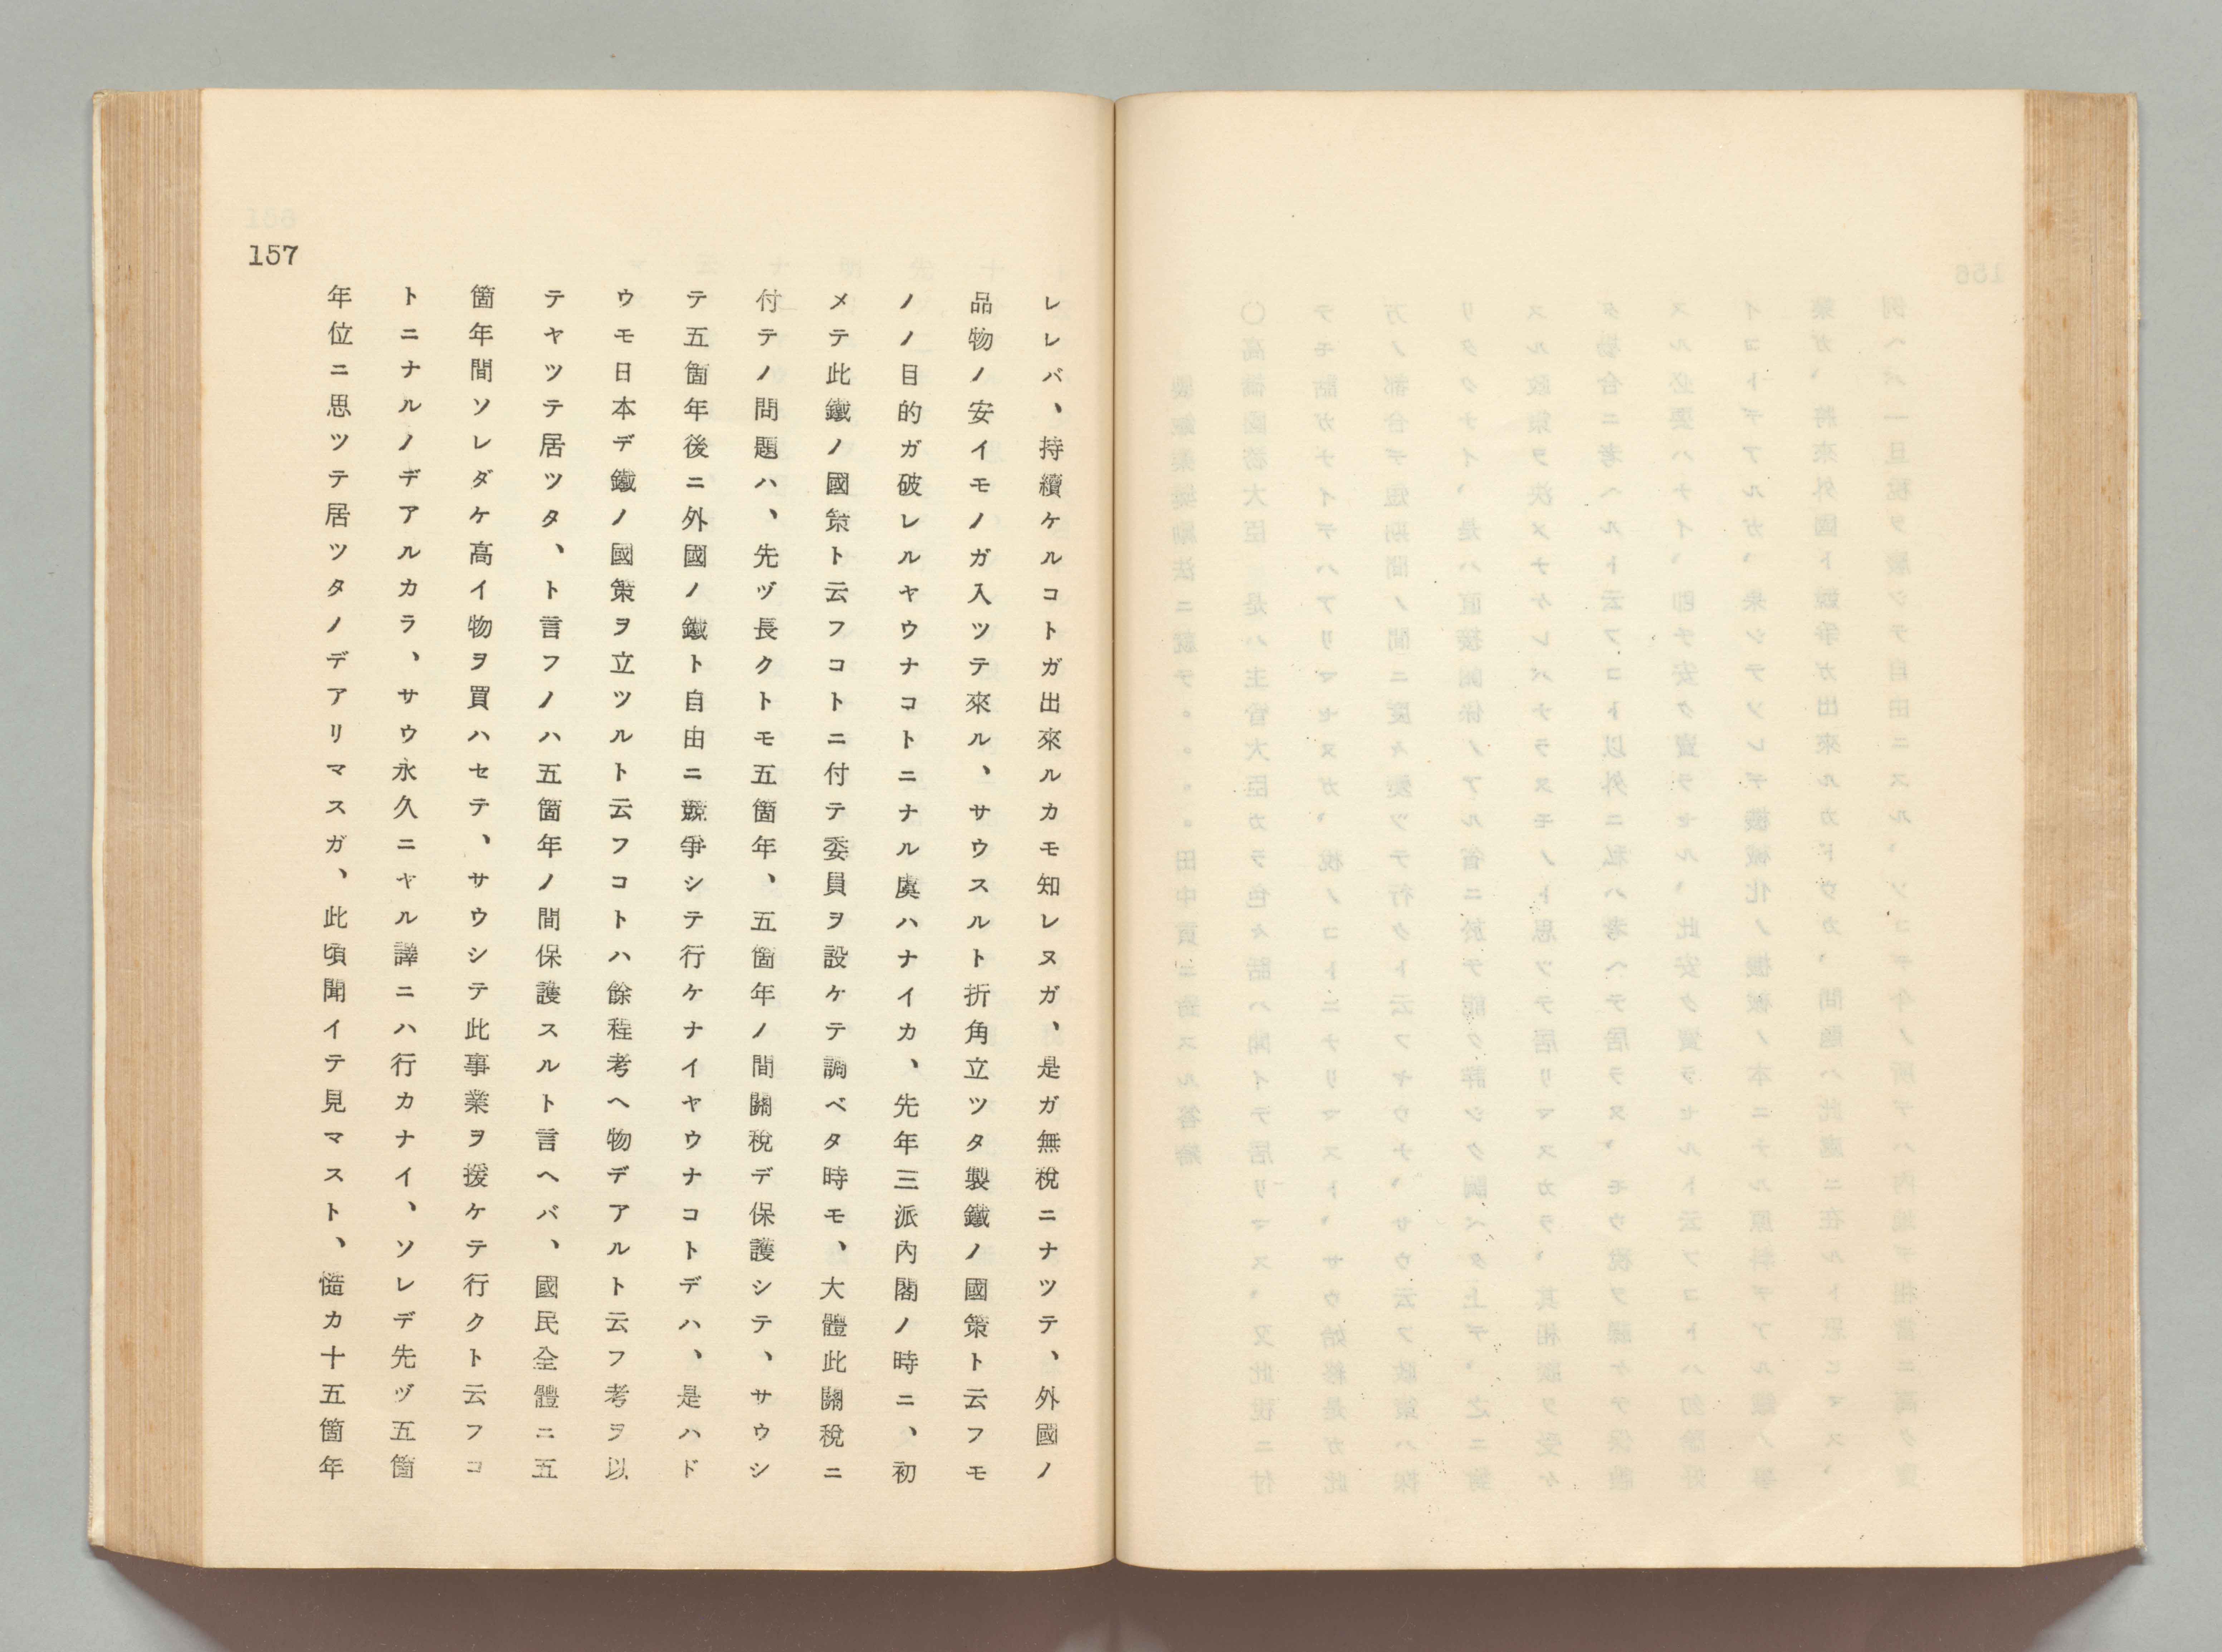 157
レレバ、持續ケルコトガ出來ルカモ知レヌガ、是ガ無稅ニナツテ、外國ノ
品物ノ安イモノガ入ツテ來ル、サウスルト折角立ツタ製鐵ノ國策ト云フモ
ノノ目的ガ破レルヤウナコトニナル虞ハナイカ、先年三派內閣ノ時ニ、初
メテ此鐵ノ國策ト云フコトニ付テ委員ヲ設ケテ調ベタ時モ、大體此關稅ニ
付テノ問題ハ、先ヅ長クトモ五箇年、五箇年ノ間關稅デ保護シテ、サウシ
テ五箇年後ニ外國ノ鐵ト自由ニ競爭シテ行ケナイヤウナコトデハ、是ハド
ウモ日本デ鐵ノ國策ヲ立ツルト云フコトハ餘程考ヘ物デアルト云フ考ヲ以
テヤツテ居ツタ、ト言フノハ五箇年ノ間保護スルト言ヘバ、國民全體ニ五
箇年間ソレダケ高イ物ヲ買ハセテ、サウシテ此事業ヲ援ケテ行クト云フコ
トニナルノデアルカラ、サウ永久ニヤル譯ニハ行カナイ、ソレデ先ヅ五箇
年位ニ思ツテ居ツタノデアリマスガ、此頃聞イテ見マスト、慥カ十五箇年